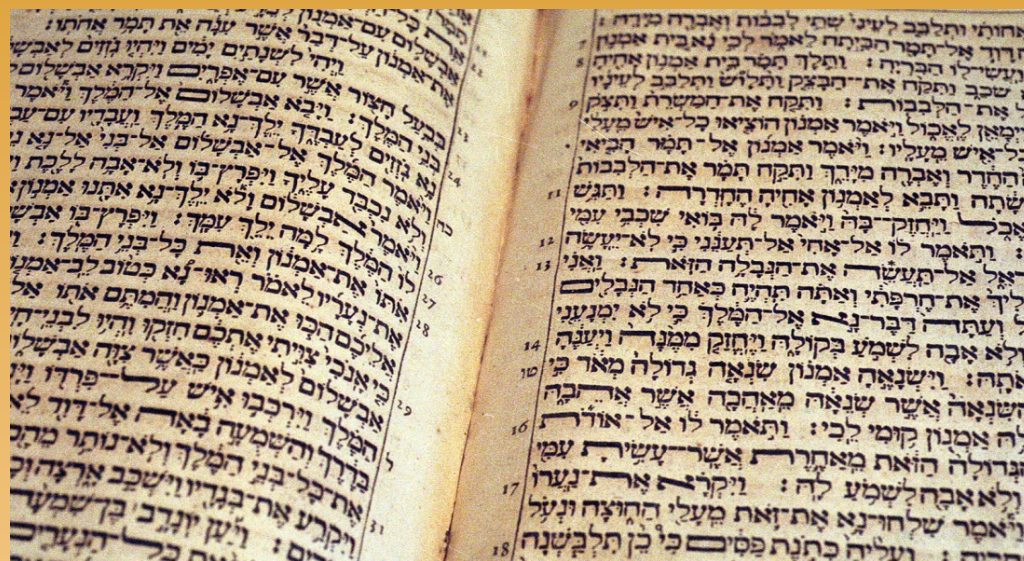 אחותי ותלבב לעיני שתי לבבות ואברה מידה :
7 דוד אל־תמר הביתה לאמר לכי נא בית אמנון
8 ועשי־לו הבריה : ותלך תמר בית אמנון אחיה
שכב ותקח את־הבצק ותלוש ותלבב לעיניו
9 את־הלבבות : ותקח את־המשרת ותצק
וימאן לאכול ויאמר אמנון הוציאו כל־איש מעלי
כל־איש מעליו : ויאמר אמנון אל־תמר הביאי
החדר ואברה מידך ותקח תמר את־הלבבות
11 עשתה ותבא לאמנון אחיה החדרה : ותגש
ויחזק־בה ויאמר לה בואי שכבי עמי
12 : ותאמר לו אל־אחי אל־תענני כי לא־יעשה
13 אל־תעשה את־הנבלה הזאת : ואני
את־חרפתי ואתה תהיה כאחד הנבלים
ועתה דבר־נא אל־המלך כי לא ימנעני
14 ולא אבה לשמע בקולה ויחזק ממנה ויענה
טו אתה : וישנאה אמנון שנאה גדולה מאד כי
השנאה אשר שנאה מאהבה אשר אהבה
16 לה אמנון קומי לכי : ותאמר לו אל־אודת
הגדולה הזאת מאחרת אשר־עשית עמי
17 ולא אבה לשמע לה : ויקרא את־נערו
ויאמר שלחו־נא את־זאת מעלי החוצה ונעל
18 ועליה כתנת פסים כי כן תלבשנה
אבשלום עם־אמנון
את־אמנון על־דבר אשר ענה את תמר אחתו :
23 ויהי לשנתים ימים ויהיו גזזים לאבשלום
בבעל חצור אשר עם־אפרים ויקרא אבשלום
24 בני המלך : ויבא אבשלום אל־המלך ויאמר
נא גזזים לעבדך ילך־נא המלך ועבדיו עם־
כה ויאמר המלך אל־אבשלום אל־בני אל־נא
ולא נכבד עליך ויפרץ־בו ולא־אבה ללכת
26 ויאמר אבשלום ולא ילך־נא אתנו אמנון
27 לו המלך למה ילך עמך : ויפרץ־בו
28 אתו את־אמנון ואת כל־בני המלך :
את־נעריו לאמר ראו־נא כטוב לב־אמנון
אליכם הכו את־אמנון והמתם אתו אל
כי אנכי צויתי אתכם חזקו והיו לבני־
29 אבשלום לאמנון כאשר צוה אבשלום
המלך וירכבו איש על־פרדו
ל בדרך והשמעה באה אל־דוד
31 את־כל־בני המלך ולא־נותר מהם
ויקרע את־בגדיו וישכב ארצה
ויען יונדב בן־שמעה